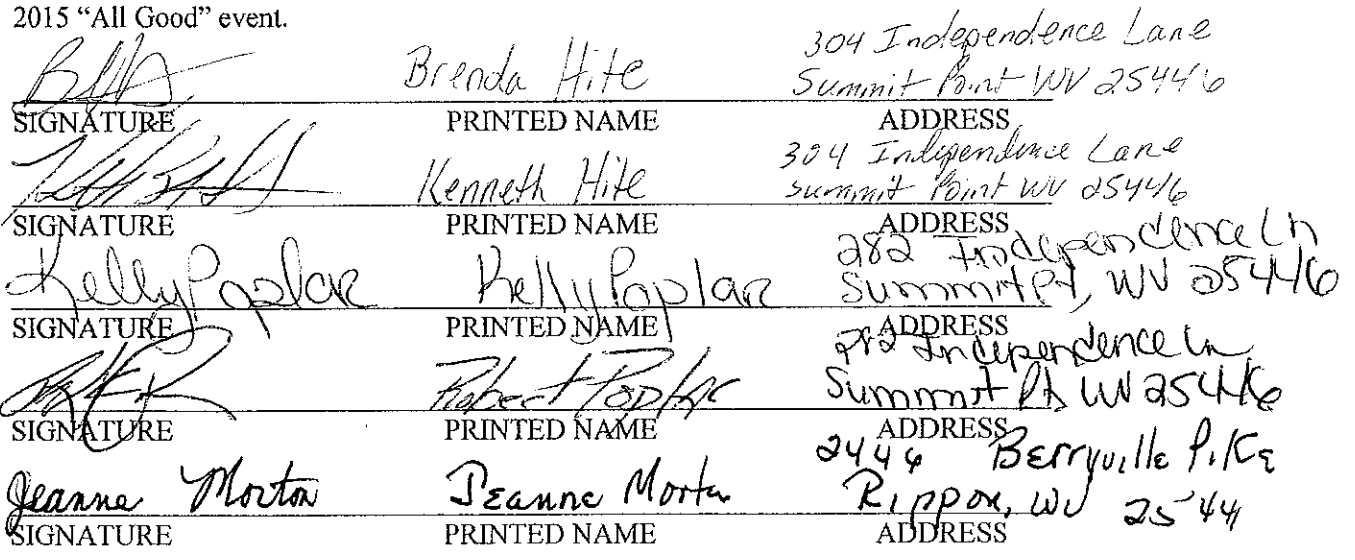 2015 “All Good” event.
Brenda Hite 304 Independence Lane
Summit Point WV 25446
SIGNATURE PRINTED NAME ADDRESS
Kenneth Hite 304 Independence Lane
Summit Point WV 25446
SIGNATURE PRINTED NAME ADDRESS
Kelly Poplar Kelly Poplar 282 Independence Ln
Summit Pt, WV 25446
SIGNATURE PRINTED NAME ADDRESS
Robert Poplar 282 Independence Ln
Summit Pt WV 25446
SIGNATURE PRINTED NAME ADDRESS
Jeanne Morton Jeanne Morton 2444 Berryville Pike
Rippon, WV 25441
SIGNATURE PRINTED NAME ADDRESS